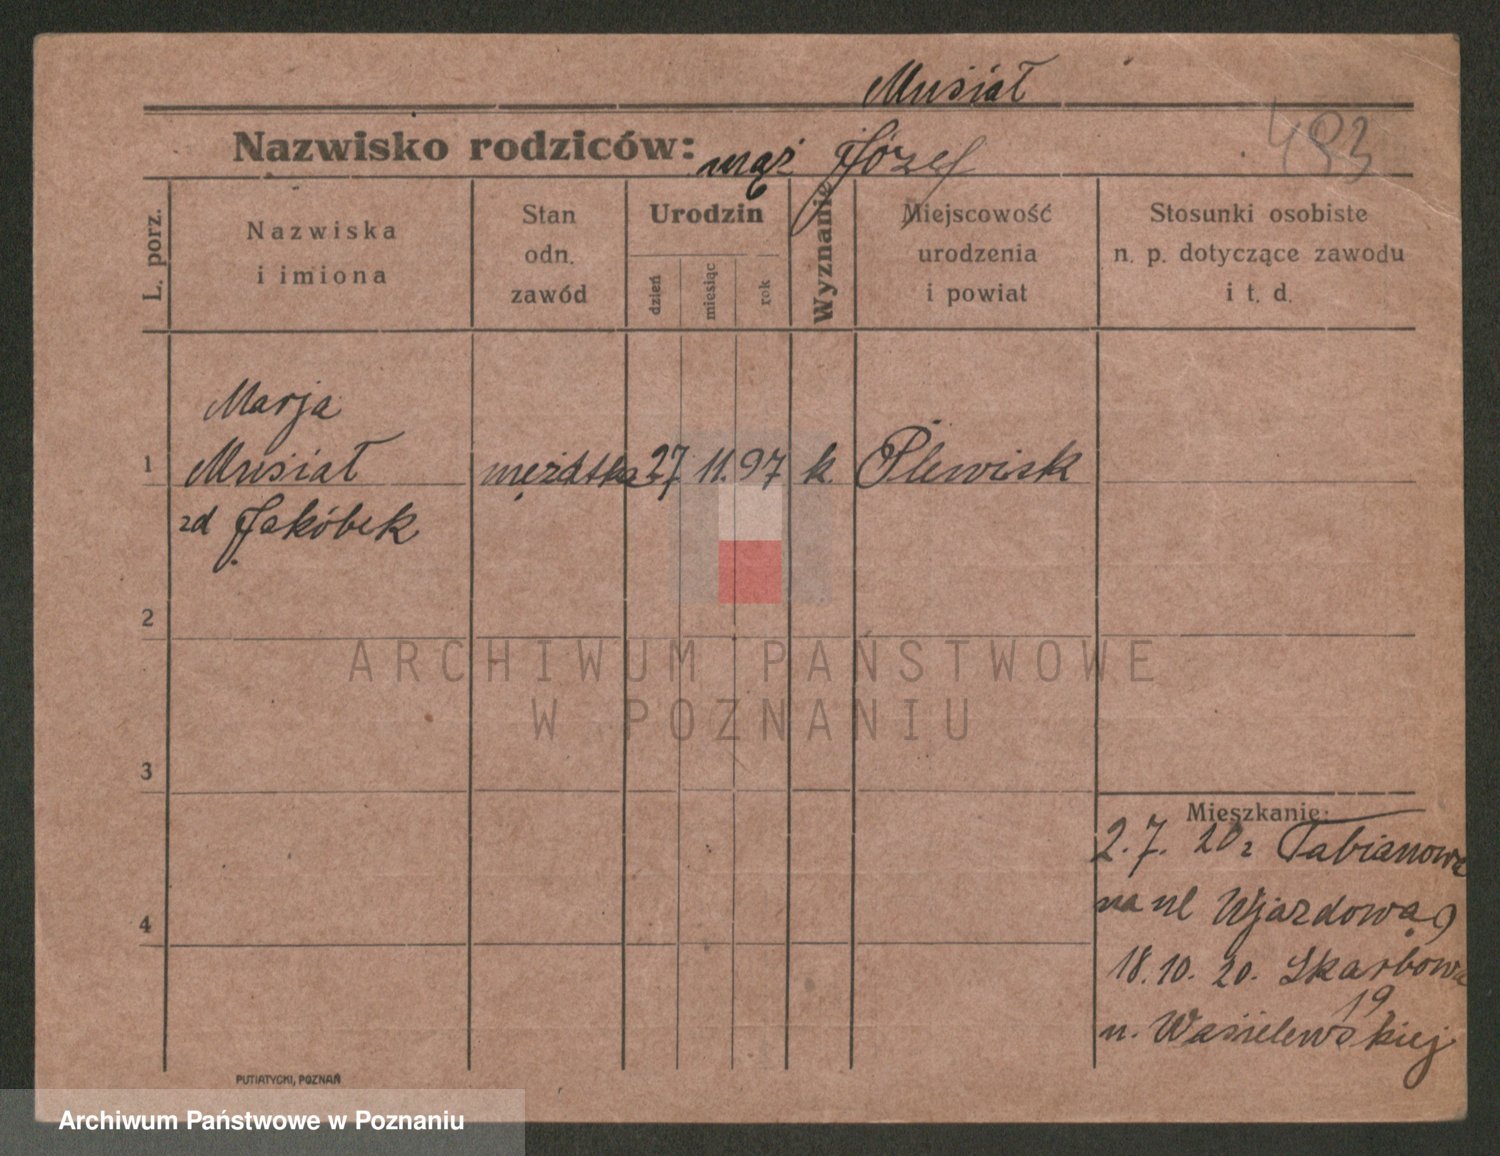 Musiał
493
Nazwisko rodziców: mąż Józef
L. porz.
Nazwiska
i imiona
Stan
odn.
zawód
Urodzin
dzień
miesiąc
rok
Wyznanie
Miejscowość
urodzenia
i powiat
Stosunki osobiste
n. p. dotyczące zawodu
i t. d.
Marja
1 Musiał mężatka 27 11. 97 k Plewisk
zd Jakóbek
2
ARCHIWUM PAŃSTWOWE
W POZNANIU
3
Mieszkanie:
2. 7. 20 z Fabianowa
na ul Wjazdową 9
4
18. 10. 20. Skarbowa
19
u. Wasielewskiej
PUTIATYCKI, POZNAŃ
Archiwum Państwowe w Poznaniu